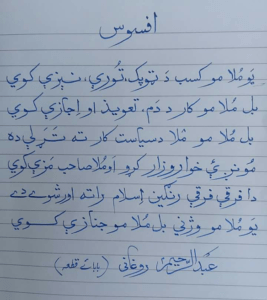 افسوس
یو مُلا مو کسب د ټوپک، تُورې، نېزې کوي
بل مُلا مو کار د دَم، تعویذ او اِجازې کوي
بل مُلا مو مُلا د سیاست کار ته تَړلې ده
مُونږ ئې خوار و زار کړو او مُلا صاحب مَزې کوي
دا فرقې فرقې رنګین اسلام راته اور شوے دے
یو مُلا مو وژني بل مُلا مو جنازې کوي
عبدالرحیم روغانی (بابائے قطعه)